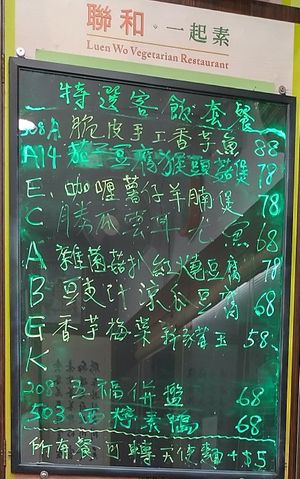 聯和·一起素
Luen Wo Vegetarian Restaurant
特選客飯套餐
208A 脆皮手工香芋魚 88
A14 茄子豆腐猴頭菇煲 78
E 咖喱薯仔羊腩煲 78
C 勝瓜雲耳 魚 68
A 雜菌菇扒紅燒豆腐 78
B 豆豉汁涼瓜豆腐 68
G 香芋梅菜 58
K
208 五福併盤 68
503 西檸素鴨 68
所有餐可轉天使麵+$5